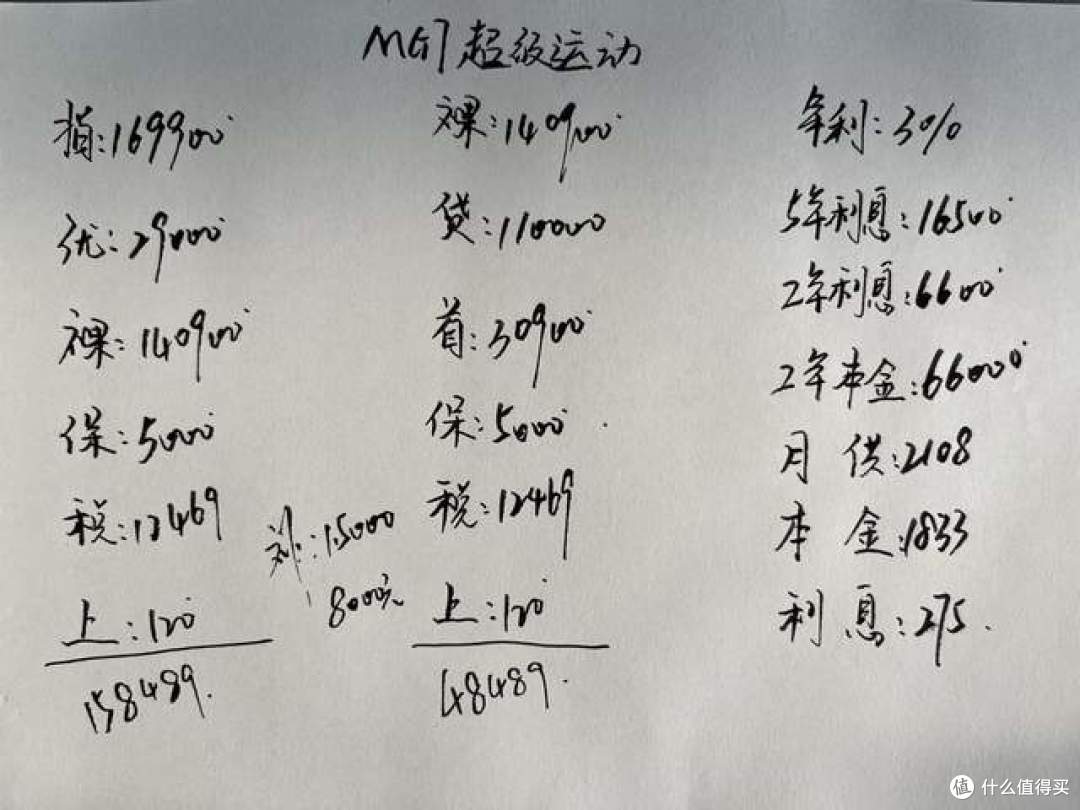 MG7 超级运动
指:169900
优:29000
裸:140900
保:5000
税:12469
上:120
158489.
补:15000
8000元
裸:140900
贷:110000
首:30900
保:5000
税:12469
上:120
48489.
年利:3%
5年利息:16500
2年利息:6600
2年本金:66000
月 供:2108
本 金:1833
利 息:275.
值 什么值得买